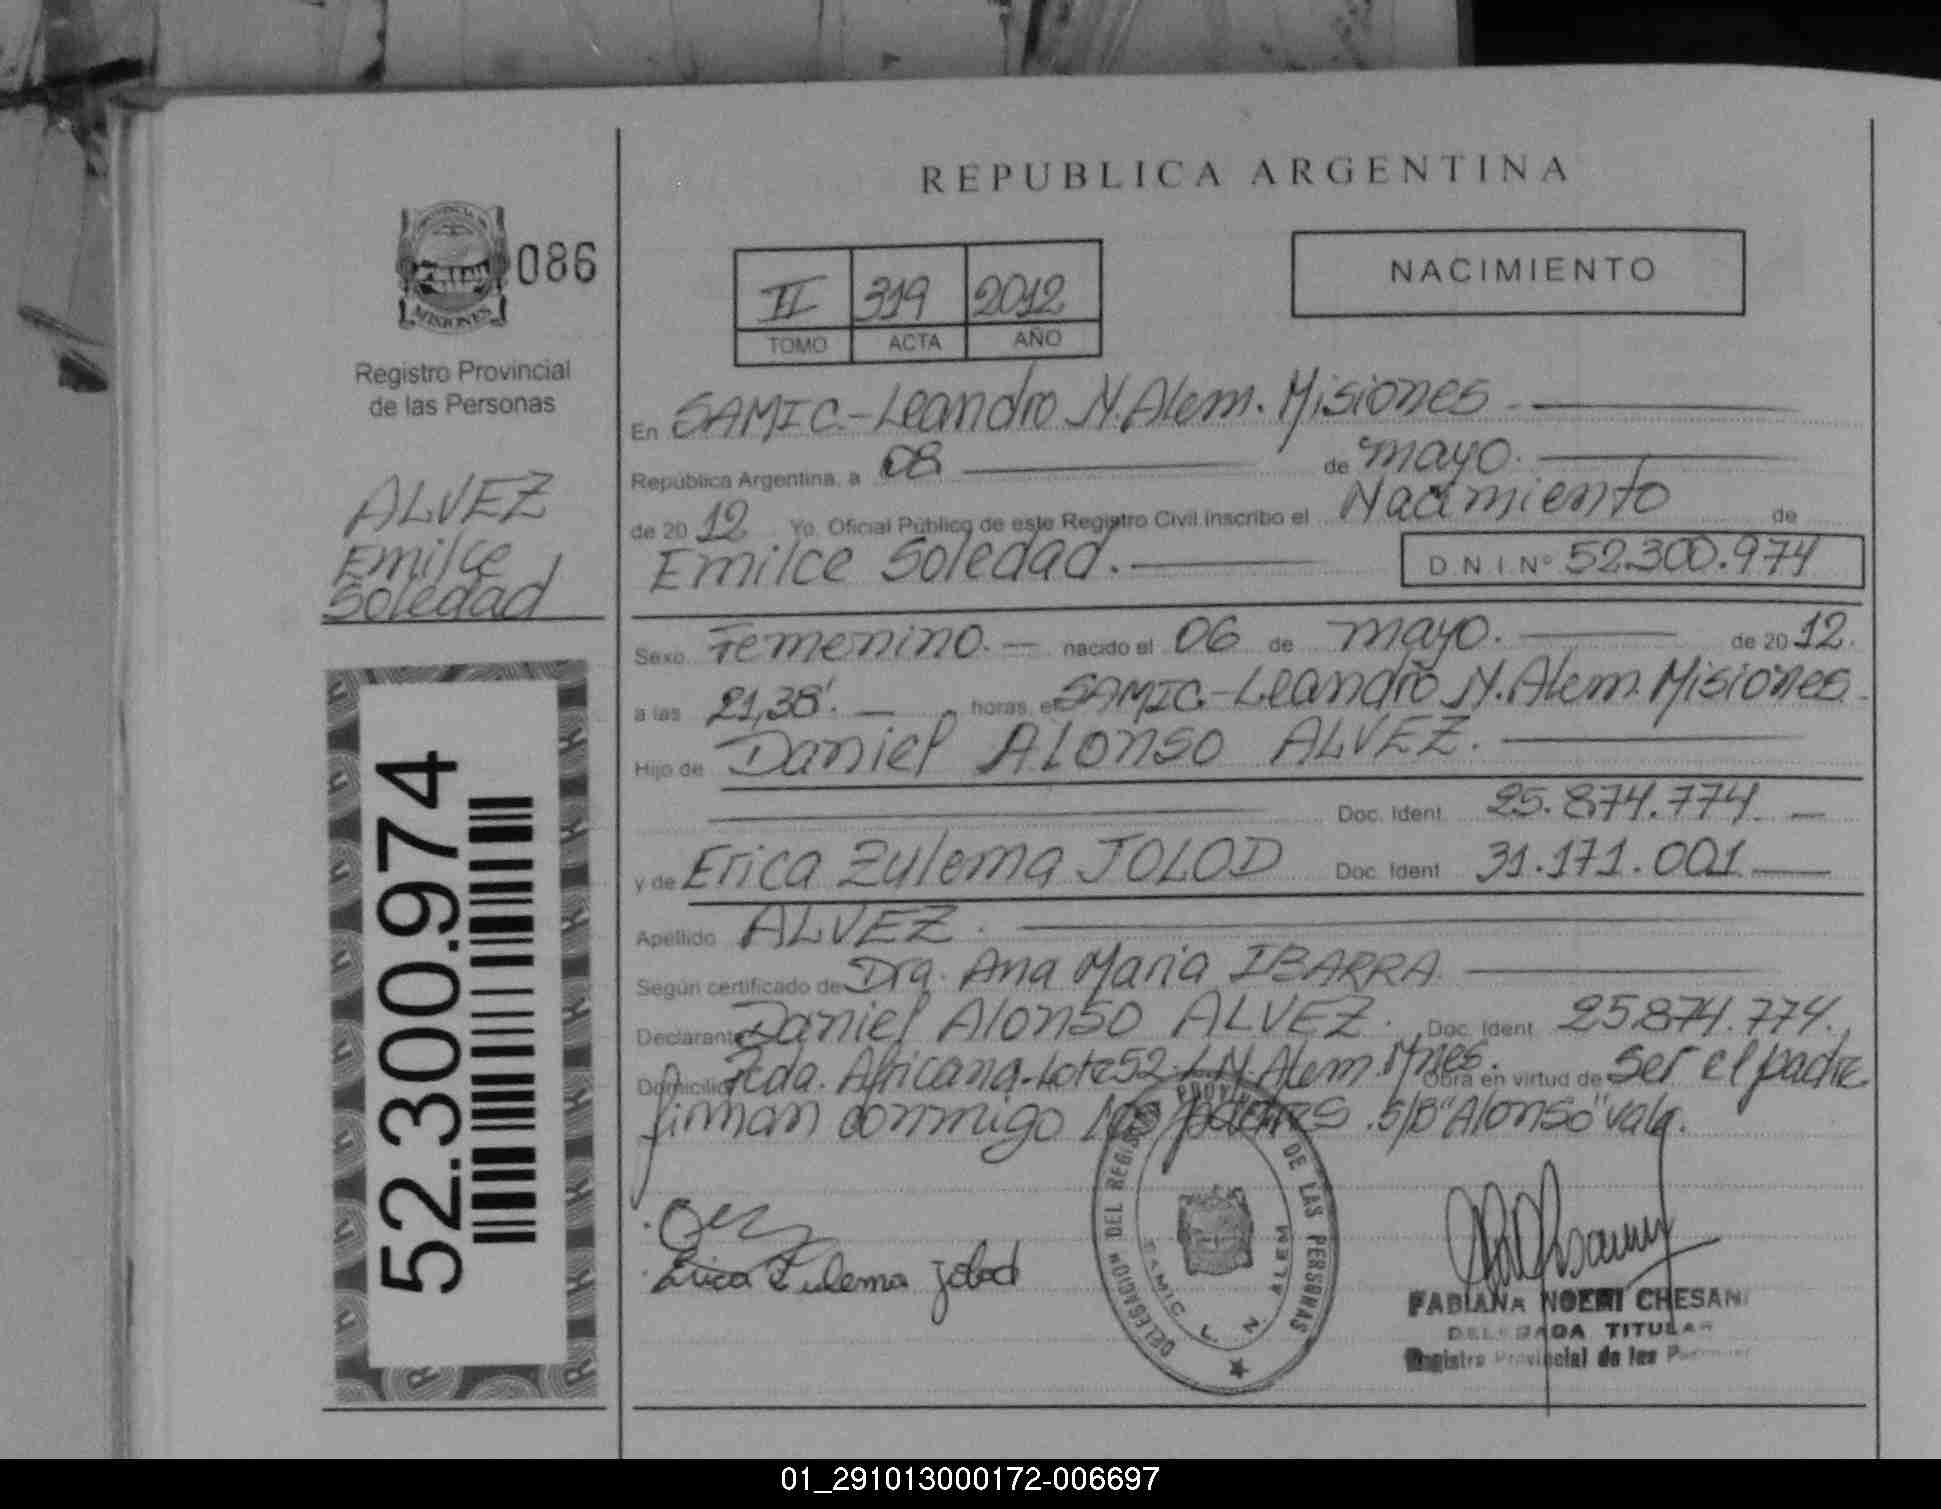 REPUBLICA ARGENTINA
MISIONES
086
Registro Provincial
de las Personas
ALVEZ
Emilce
Soledad
52.300.974
II 319 2012
TOMO ACTA AÑO
NACIMIENTO
En SAMIC.-Leandro N. Alem. Misiones
República Argentina, a 08 de mayo.
de 2012 Yo, Oficial Público de este Registro Civil inscribo el Nacimiento de
Emilce Soledad. D.N.I. Nº 52.300.974
Sexo Femenino. nacido el 06 de mayo. de 2012.
a las 21,38'. horas, en SAMIC.-Leandro N. Alem. Misiones
Hijo de Daniel Alonso ALVEZ.
Doc. Ident. 25.874.774
y de Erica Zulema JOLOD Doc. Ident 31.171.001
Apellido ALVEZ.
Según certificado de Dra. Ana Maria IBARRA
Declarante Daniel Alonso ALVEZ. Doc. Ident. 25874.774.
Domicilio Pcda. Africana-Lote 52-L.N. Alem. Mnes. Obra en virtud de ser el padre
firman conmigo los padres. S/B "Alonso" vale.
Erica Zulema Jolod
DELEGACION DEL REGISTRO DE LAS PERSONAS
SAMIC L. N. ALEM
FABIANA NOEMI CHESANI
DELEGADA TITULAR
Registro Provincial de las
01_291013000172-006697